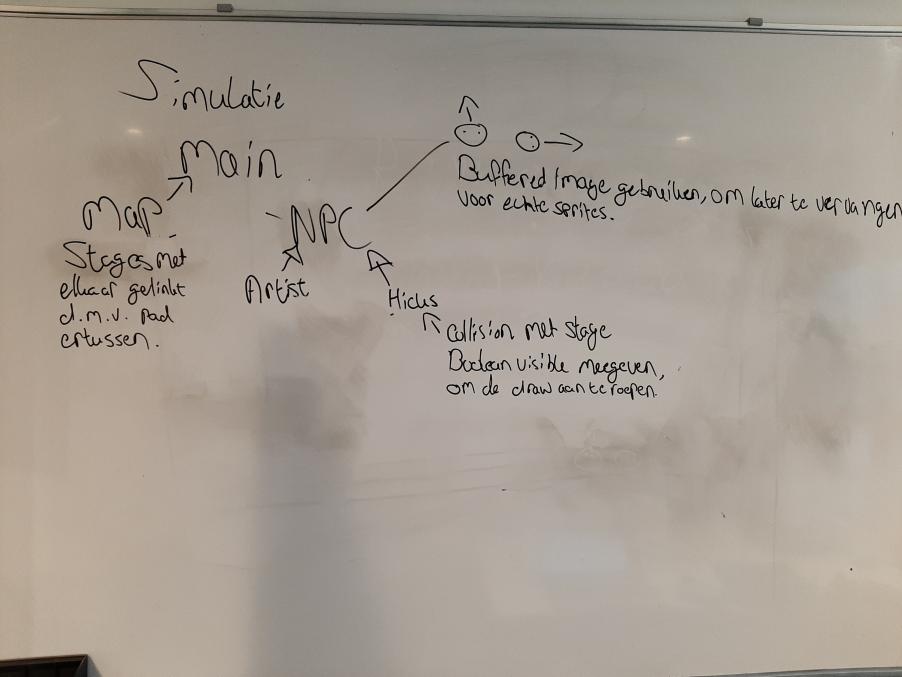 Simulatie
Main
Map
Stages met
elkaar gelinkt
d.m.v. pad
ertussen.
NPC
Buffered Image gebruiken, om later te vervangen
voor echte sprites.
Artist
Collision met stage
Boolean visible meegeven,
om de draw aan te roepen.